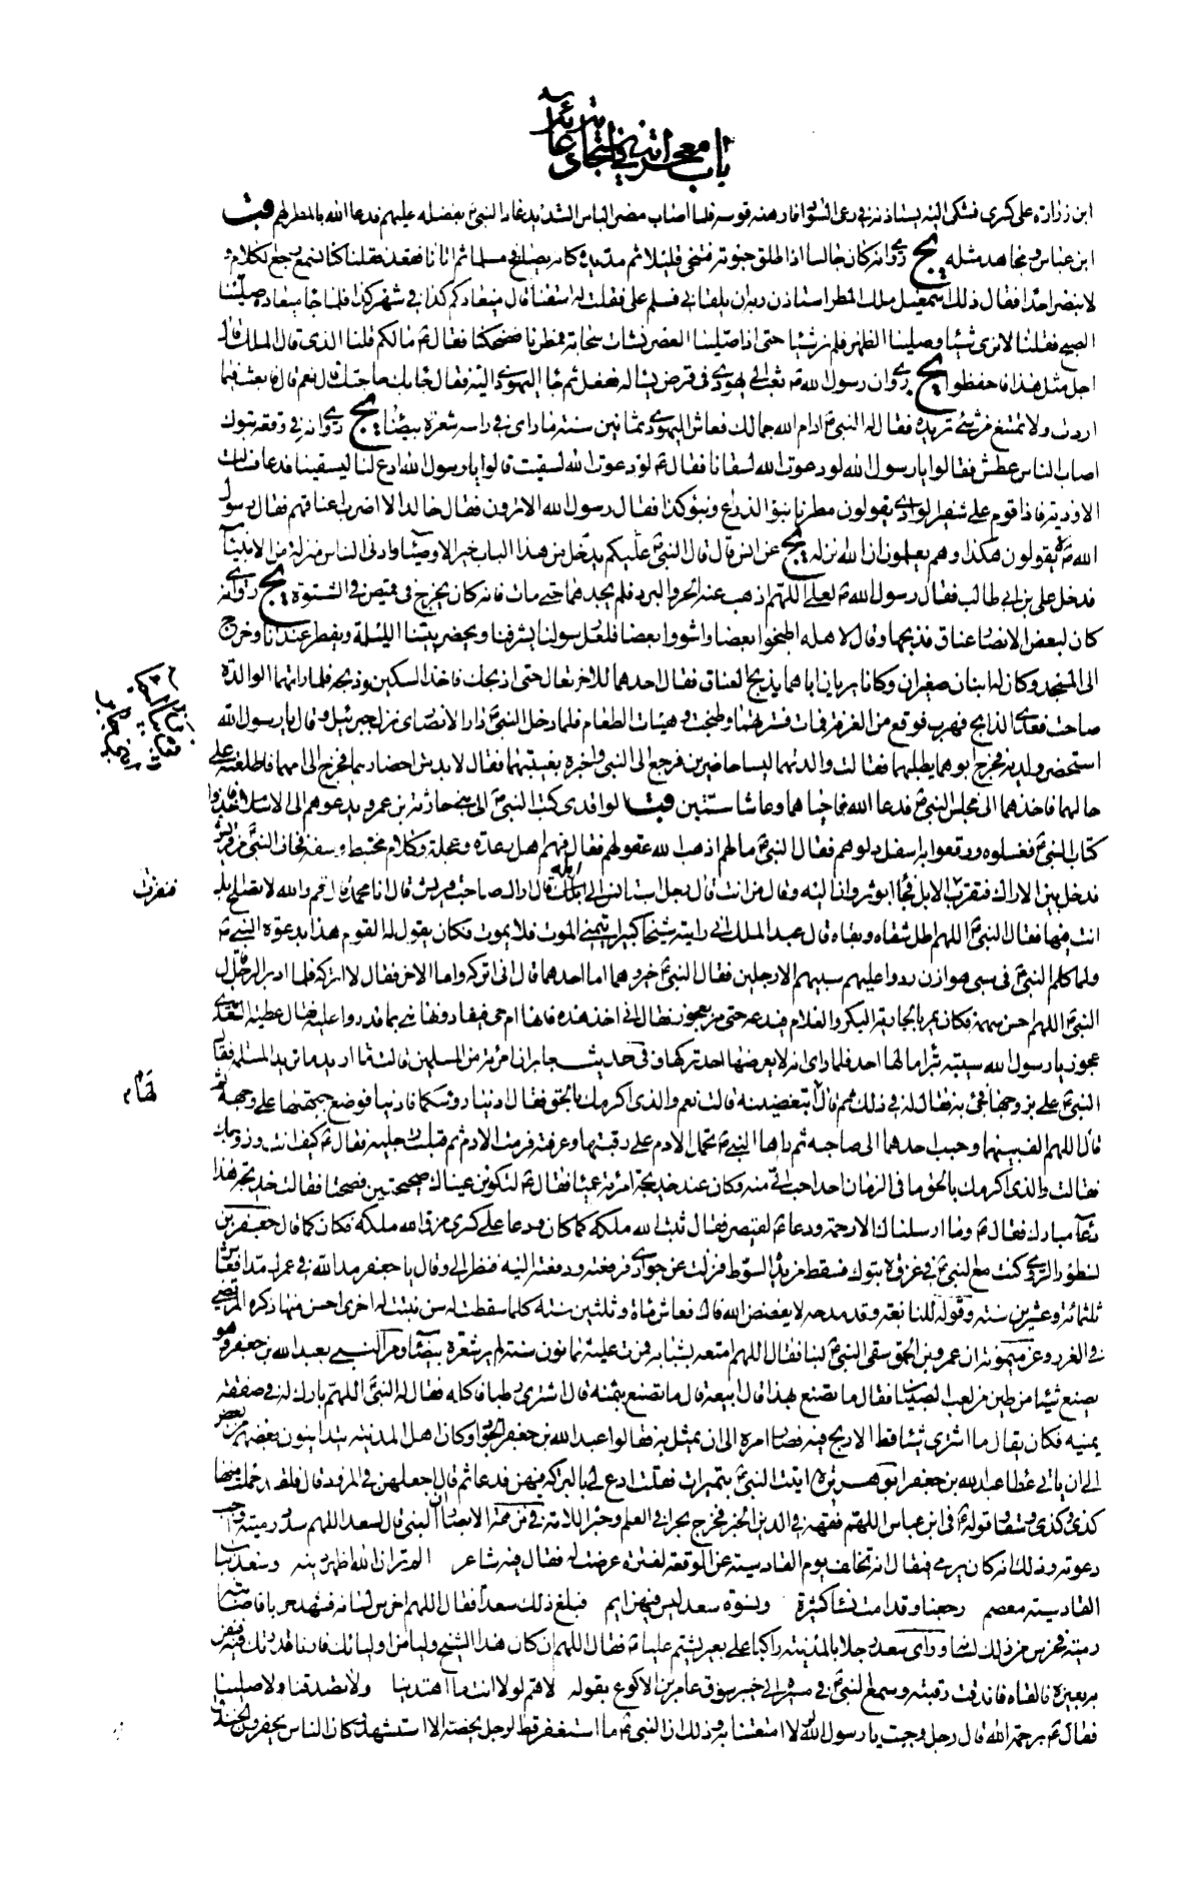 باب معجزاته في استجابة دعائه
ابن زرارة على كسرى فشكى اليه يستاذنه في رعى السواد فارهنه قوسه فلما اصاب مضر الباس الشديد عاد النبي بفضله عليهم فدعا الله بالمطر لهم قب
ابن عباس ومجاهد مثله يج روى انه كان جالسا اذا اطلق حبوته فتنحى قليلا ثم مد يده كانه يصافح مسلما ثم اتانا فقعد فقلنا كنا نسمع رجع الكلام و
لا نبصر احدا فقال ذلك اسمعيل ملك المطر استاذن ربه ان يلقاني فسلم على فقلت له اسقنا قال ميعادكم كذا في شهر كذا فلما جاء ميعاده صلينا
الصبح فقلنا لا نرى شيئا وصلينا الظهر فلم نر شيئا حتى اذا صلينا العصر نشات سحابة فمطرنا فضحكنا فقال ص مالكم قلنا الذي قال الملك قال
اجل مثل هذا فاحفظوا يج روى ان رسول الله ص بعث الى يهودى في قرض يساله ففعل ثم جاء اليهودى اليه فقال جاءتك حاجتك قال نعم قال فابعث فيما
اردت ولا تمتنع من شئ تريده فقال له النبي ص ادام الله جمالك فعاش اليهودى ثمانين سنة ما راى في راسه شعرة بيضاء يج روى انه في وقعة تبوك
اصاب الناس عطش فقالوا يا رسول الله لو دعوت الله لسقانا فقال ص لو دعوت الله لسقيت قالوا يا رسول الله ادع لنا ليسقينا فدعا فسالت
الاودية فاذا قوم على شفير الوادي يقولون مطرنا بنوء الذراع وبنوء كذا فقال رسول الله الا ترون فقال خالد الا اضرب اعناقهم فقال رسول
الله ص يقولون هكذا وهم يعلمون ان الله نزله يج عن انس قال قال النبي ص عليكم يدخل من هذا الباب خير الاوصياء وادنى الناس منزلة من الانبياء
فدخل على بن ابي طالب فقال رسول الله ص لعلي اللهم اذهب عنه الحر والبرد فلم يجدهما حتى مات فانه كان يخرج في قميص في الشتوة يج روى انه
كان لبعض الانصار عناق فذبحها وقال لاهله اطبخوا بعضا واشووا بعضا فلعل رسولنا يشرفنا ويحضر بيتنا الليلة ويفطر عندنا وخرج
الى المسجد وكان له ابنان صغيران وكانا يريان اباهما يذبح العناق فقال احدهما للاخر تعال حتى اذبحك فاخذ السكين وذبحه فلما راتهما الوالدة
صاحت فعدى الذابح فهرب فوقع من الغرفة فمات فسترتهما وطبخت وهيات الطعام فلما دخل النبي ص دار الانصارى نزل جبرئيل وقال يا رسول الله
استحضر ولديه فخرج ابوهما يطلبهما فقالت والدتهما ليسا حاضرين فرجع الى النبي واخبره بغيبتهما فقال لا بد من احضارهما فخرج الى امهما فاطلعته على
حالهما فاخذهما الى مجلس النبي ص فدعا الله فاحياهما وعاشا سنين قب الواقدى كتب النبي ص الى بني حارثة بن عمرو يدعوهم الى الاسلام فاخذوا
كتاب النبي ص فغسلوه ورقعوا به اسفل دلوهم فقال النبي ص مالهم اذهب الله عقولهم فقال فهم اهل رعدة وعجلة وكلام مختلط وسفه فخاف النبي ص من قريش
فدخل بين الاراك فنفرت الابل فجاء ابو ثروان اليه وقال من انت قال رجل استانس الى ابلك قال اراك صاحب قريش قال انا محمد قال قم والله لا تصلح ابل
انت فيها فقال النبي ص اللهم اطل شقاه وبقاه قال عبد الملك اني رايته شيخا كبيرا يتمنى الموت فلا يموت فكان يقول له القوم هذا بدعوة النبي ص
ولما كلم النبي ص في سبي هوازن ردوا عليهم سبيهم الا رجلين فقال النبي ص خيروهما اما احدهما قال اني اتركه واما الاخر فقال لا اتركه فلما ادبر الرجل قال
النبي ص اللهم اخس سهمه فكان يمر بالجارية البكر والغلام فيدعه حتى مر بعجوز فقال اني اخذ هذه فانها ام حي فيفادونها مني بما قدروا عليه فقال عطية السعدى
عجوز يا رسول الله سبية بتراء مالها احد فلما راى انه لا يعرضها احد تركها وفي حديث جابر ان امراة من المسلمين قالت ما اريد ما تريد المسلمة فقال
النبي ص على بزوجها فجئ به فقال له في ذلك ثم قال لها تبغضينه قالت نعم والذي اكرمك بالحق فقال ادنيا رؤسكما فادنيا فوضع جبهتها على جبهته ثم
قال اللهم الف بينهما وحبب احدهما الى صاحبه ثم راها النبي ص تحمل الادم على رقبتها وعرفته فرمت الادم ثم قبلت رجليه فقال ص كيف انت وزوجك
فقالت والذي اكرمك بالحق ما في الزمان احد احب الي منه وكان عند خديجة امراة عمياء فقال ص لتكونن عيناك صحيحتين فصحتا فقالت خديجة هذا
دعاء مبارك فقال ص وما ارسلناك الا رحمة ودعا ص لقيصر فقال ثبت الله ملكه كما كان ودعا على كسرى مزق الله ملكه فكان كما قال جعفر بن
نسطور الرومى كنت مع النبي ص في غزوة تبوك فسقط من يده السوط فنزلت عن جوادى فرفعته ودفعته اليه فنظر الي وقال يا جعفر مد الله في عمرك مدا فعاش
ثلثمائة وعشرين سنة وقوله للنابغة وقد مدحه لا يفضض الله فاك فعاش مائة وثلثين سنة كلما سقطت له سن نبتت له اخرى احسن منها ذكره المرتضى
في الغرر وعن ميمونة ان عمرو بن الحمق سقى النبي ص لبنا فقال اللهم امتعه بشبابه فمرت عليه ثمانون سنة لم ير شعرة بيضاء ومر النبي بعبد الله بن جعفر وهو
يصنع شيئا من طين من لعب الصبيان فقال ما تصنع بهذا قال ابيعه قال ما تصنع بثمنه قال اشترى رطبا فاكله فقال له النبي ص اللهم بارك له في صفقة
يمينه فكان يقال ما اشترى شيئا قط الا ربح فيه فصار امره الى ان يمثل به فقالوا عبد الله بن جعفر الجواد وكان اهل المدينة يتداينون بعضهم من بعض
الى ان ياتي عطاء عبد الله بن جعفر ابو هريرة اتيت النبي ص بتمرات فقلت ادع لي بالبركة فيهن فدعا ثم قال اجعلهن في المزود قال فلقد حملت منها
كذى وكذى وسقا وقوله ص في ابن عباس اللهم فقهه في الدين الخبر فخرج بحرا في العلم وحبرا للامة في نزهة الابصار ان النبي قال لسعد اللهم سدد رميته واجب
دعوته وذلك انه كان يرمي فيقال انه تخلف يوم القادسية عن الوقعة لفترة عرضت له فقال فيه شاعر الم تر ان الله اظهر دينه وسعد بباب
القادسية معصم رجعنا وقد امت نساء كثيرة ونسوة سعد ليس فيهن ايم فبلغ ذلك سعدا فقال اللهم اخرس لسانه فشهد حربا فاصابته
رمية فخرس من ذلك لسانه وراى سعد رجلا بالمدينة راكبا على بعير يشتم عليا ص فقال اللهم ان كان هذا الشيخ وليا من اوليائك فارنا قدرتك فيه فنفر
به بعيره فالقاه فاندقت رقبته وسمع النبي ص في مسيره الى خيبر سوق عامر بن الاكوع بقوله لاهم لولا انت ما اهتدينا ولا تصدقنا ولا صلينا
فقال ص يرحمه الله قال رجل وجبت يا رسول الله لولا امتعتنا به وذلك ان النبي ص ما استغفر قط لرجل يخصه الا استشهد كان الناس يحفرون الخندق
فنفرت
لهام